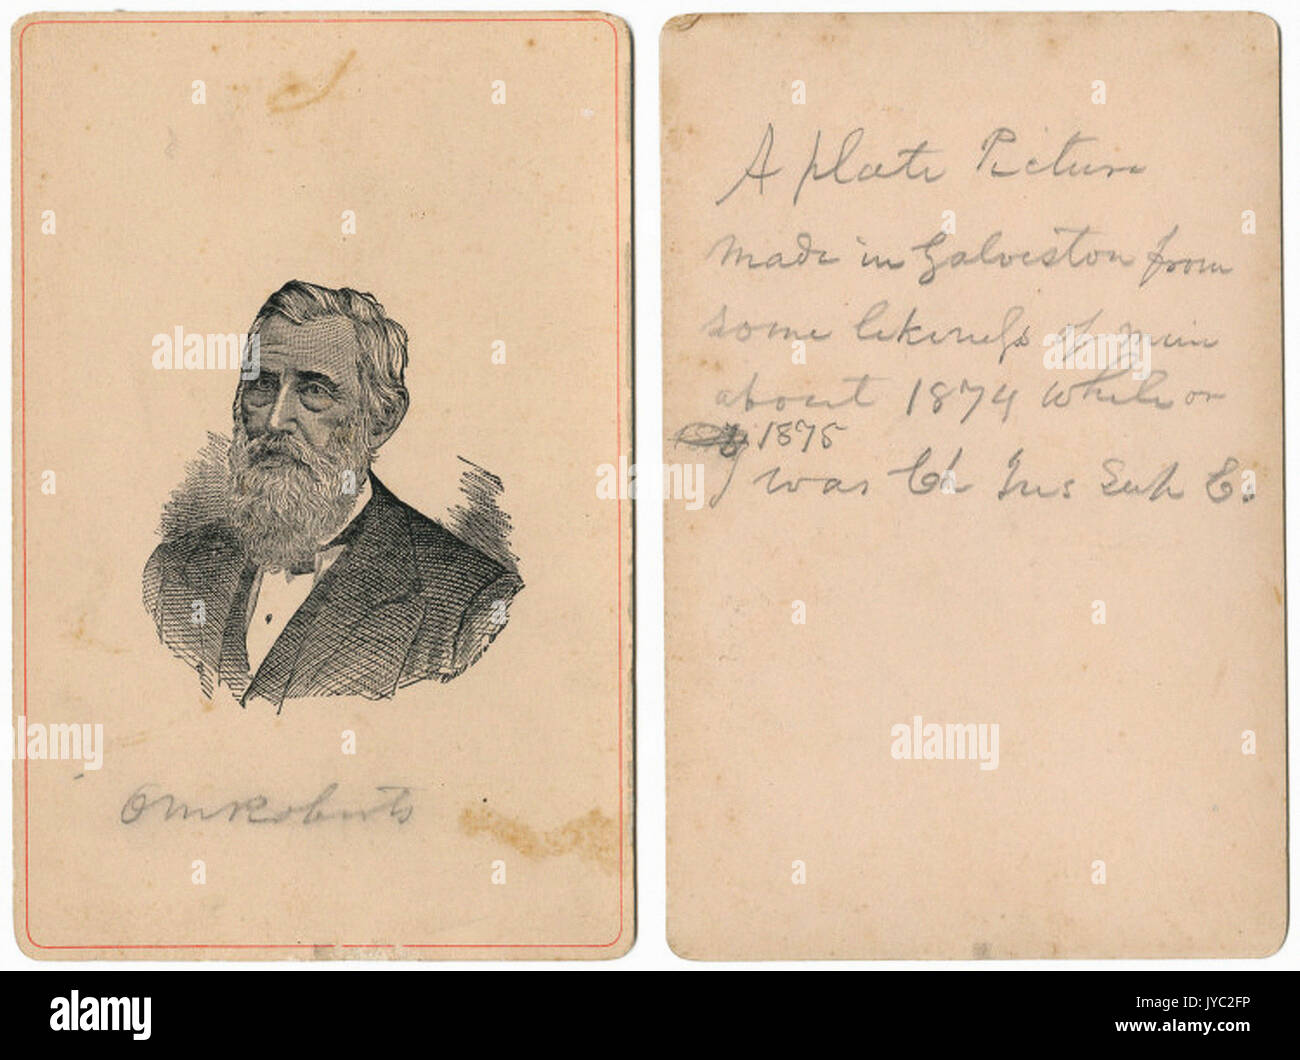 OM Roberts
A plate Picture
made in Galveston from
some likeness of mine
about 1874 while or
1875
I was Ch Jus Sup C.
alamy
alamy
alamy
a
alamy
Image ID: JYC2FP
www.alamy.com